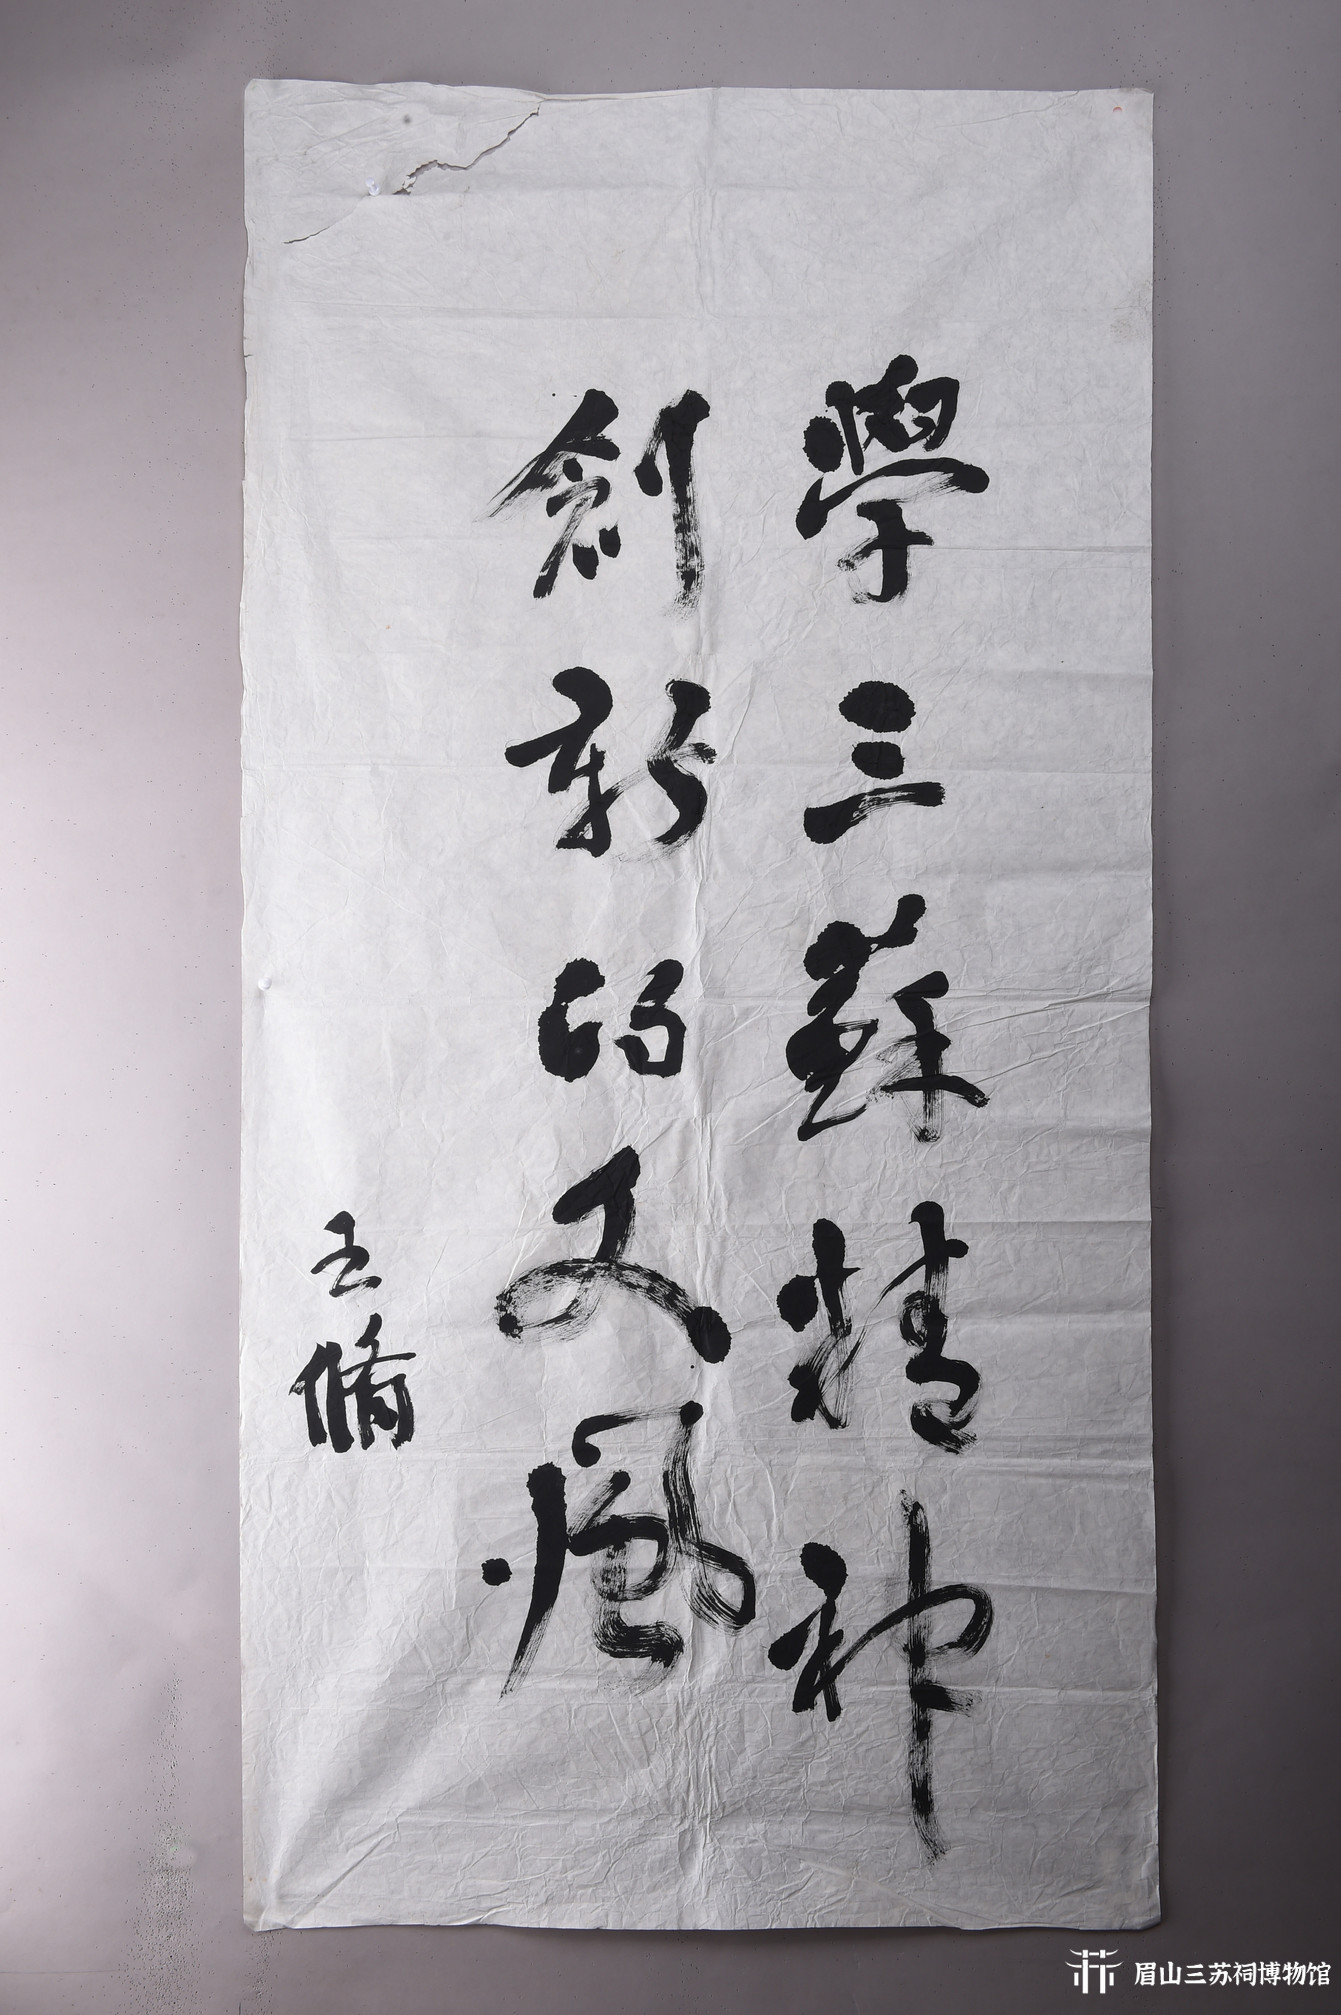 學三蘇精神
創新的文風
王脩
眉山三苏祠博物馆